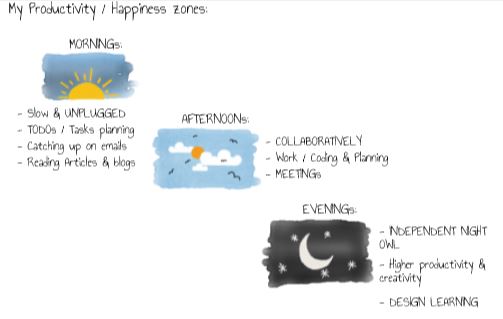 My Productivity / Happiness zones:
MORNINGs:
- Slow & UNPLUGGED
- TODOs / Tasks planning
- Catching up on emails
- Reading Articles & blogs
AFTERNOONs:
- COLLABORATIVELY
- Work / Coding & Planning
- MEETINGs
EVENINGs:
- INDEPENDENT NIGHT
OWL
- Higher productivity &
creativity
- DESIGN LEARNING